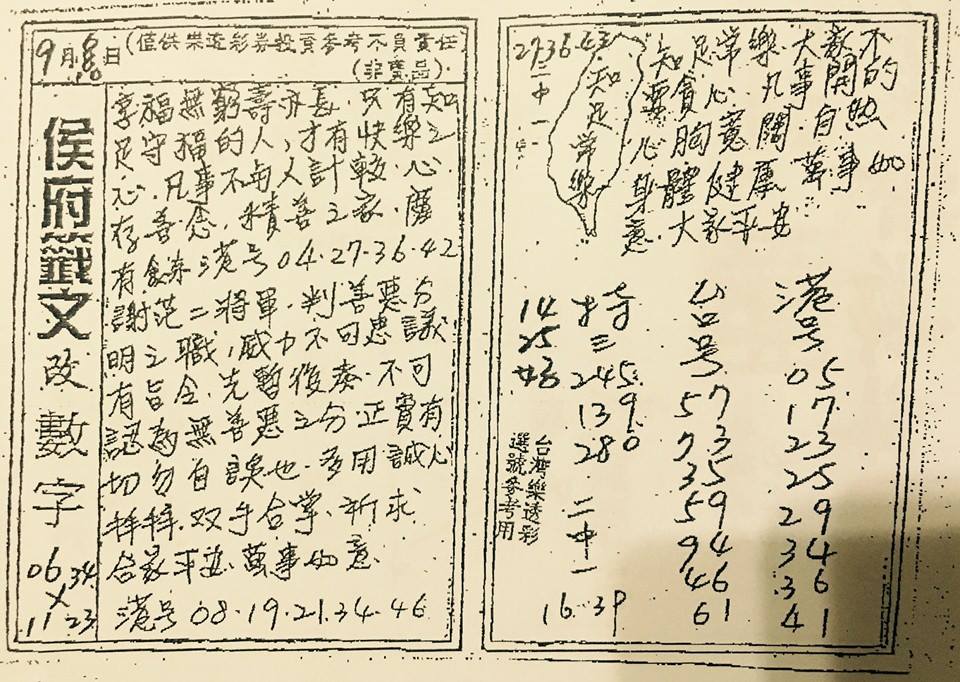 9月 日
(值供樂透彩券投資參考不負責任
(非賣品)
侯府籤文改數字
06 34
×
11 23
享福無窮壽亦長.只有知
足守福的人,才有快樂之
心.凡事不與人計較.心
存善念.積善之家.慶
有餘.港号04.27.36.42
謝范二將軍.判善惡分
明之職,威力不可思議
有旨令.先暫後奏.不可
認為無善惡之分.正實有
切勿自誤也.多用誠心
拜拜.双手合掌.祈求
合家平安.萬事如意.
港号08.19.21.34.46
27.36.43
二中一
知足常樂
不的然如
意開自事
大事 萬
樂凡闊厚
常心寬健
足貪胸體大家平安
知要心身意
港号
05
17
23
25
29
34
36
41
台号
57
73
35
59
94
46
61
特三
245
139
280
二中一
16.39
14
25
43
台灣樂透彩
選號參考用